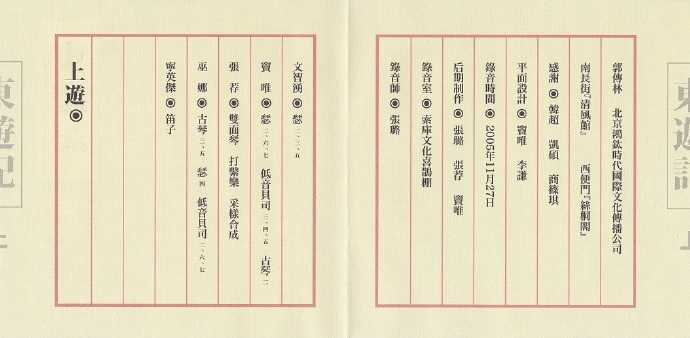 郭傳林　北京鴻鈦時代國際文化傳播公司
南長街『清風館』　西便門『絲桐閣』
感謝◉韓超　凱碩　商篠琪
平面設計◉竇唯　李謙
錄音時間◉2005年11月27日
后期制作◉張璐　張荐　竇唯
錄音室◉索庫文化喜鵲棚
錄音師◉張璐
文智湧◉瑟 二、三、五
竇　唯◉瑟 一、六、七　低音貝司 三、四、五　古琴 二
張　荐◉雙面琴　打擊樂　采樣合成
巫　娜◉古琴 三、五　瑟 四　低音貝司 二、六、七
寧英傑◉笛子
上遊◉
東遊記
東遊記
上